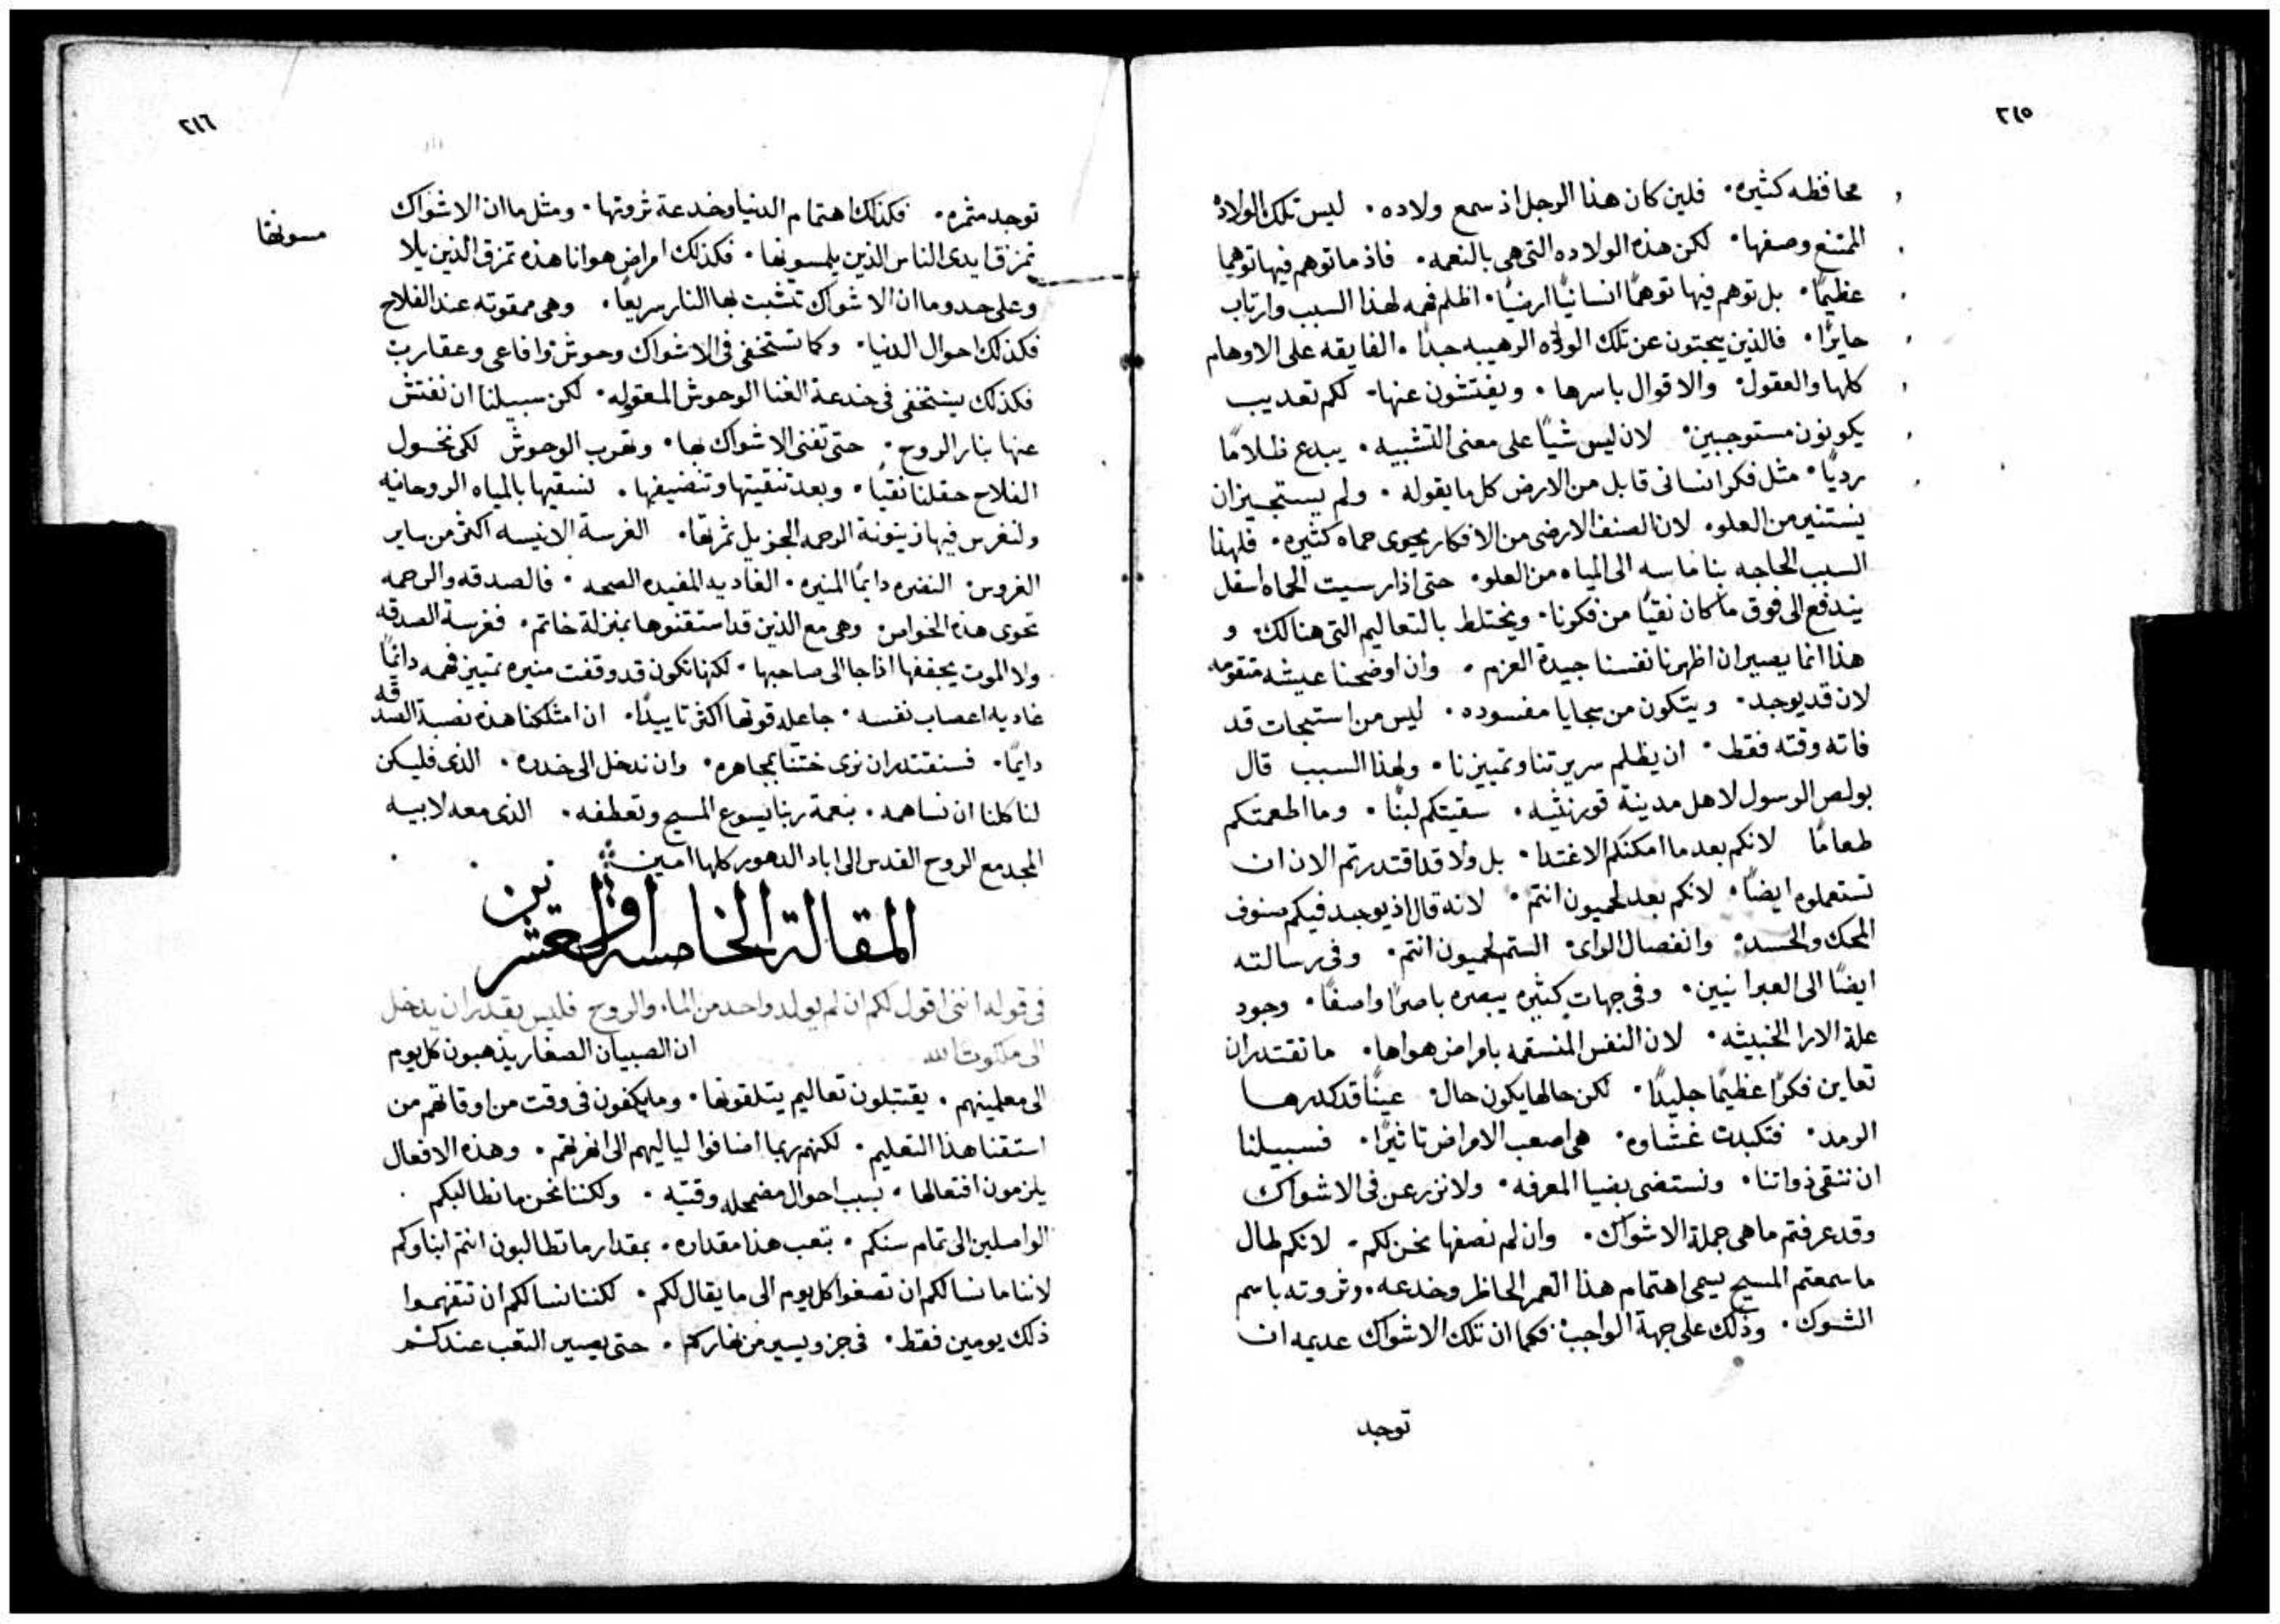 ٢١٥
محافظه كثيره. فلين كان هذا الرجل اذ سمع ولاده. ليس تلك الولادة
الممتنع وصفها. لكن هذه الولاده التي هي بالنعمه. فاذ ما توهم فيها توهما
عظيمًا. بل توهم فيها توهمًا انسانيًا ارضيًا. اظلم فهمه لهذا السبب وارتاب
حايرًا. فالذين يبحثون عن تلك الولاده الرهيبه جدًا. الفايقه على الاوهام
كلها والعقول. والاقوال باسرها. ويفتشون عنها. لكم تعديب
يكونون مستوجبين. لان ليس شيًا على معنى التشبيه. يبدع ظلامًا
رديًا. مثل فكر انساني قابل من الارض كل ما يقوله. ولم يستجيز ان
يستنير من العلو. لان الصنف الارضي من الافكار يحوى حماه كثيره. فلهذا
السبب الحاجه بنا ماسه الى المياه من العلو. حتى اذا رسيت الحماه اسفل
يندفع الى فوق ما كان نقيًا من فكرنا. ويختلط بالتعاليم التي هنالك. و
هذا انما يصير ان اظهرنا نفسنا جيدة العزم. وان اوضحنا عيشه متقومه
لان قد يوجد. ويتكون من سجايا مفسوده. ليس من استبحات قد
فاته وقته فقط. ان يظلم سريرتنا وتمييزنا. ولهذا السبب قال
بولص الرسول لاهل مدينة قورنثيه. سقيتكم لبنًا. وما اطعمتكم
طعامًا لانكم بعد ما امكنكم الاغتدا. بل ولا قد اقتدرتم الان ان
تستعملوه ايضًا. لانكم بعد لحميون انتم. لانه قال اذ يوجد فيكم صنوف
المحك والحسد. وانفصال الراى. الستم لحميون انتم. وفي رسالته
ايضًا الى العبرانيين. وفي جهات كثيره يبصره باصرًا واصفًا. وجود
علة الارا الخبيثه. لان النفس المنسقمه بامراض هواها. ما تقتدر ان
تعاين فكرًا عظيمًا جليدًا. لكن حالها يكون حال عينًا قد كدرها
الرمد. فتكبدت غشاوه. هي اصعب الامراض تاثيرًا. فسبيلنا
ان ننقى ذواتنا. ونستضى بضيا المعرفه. ولا نزرعن في الاشواك
وقد عرفتم ما هي جملة الاشواك. وان لم نصفها نحن لكم. لانكم طال
ما سمعتم المسيح يسمى اهتمام هذا العمر الحاظر وخدعه. وثروته باسم
الشوك. وذلك على جهة الواجب. فكما ان تلك الاشواك عديمه ان
توجد
٢١٦
توجد مثمره. فكذلك اهتمام الدنيا وخدعة ثروتها. ومثل ما ان الاشواك
تمزق ايدى الناس الذين يلمسونها. فكذلك امراض هوانا هذه تمزق الذين يلا
مسونها
وعلى حدو ما ان الاشواك تتشبت بها النار سريعًا. وهى ممقوته عند الفلاح
فكذلك احوال الدنيا. وكما تستخفى فى الاشواك وحوش وافاعى وعقارب
فكذلك يستخفى فى خدعة الغنا الوحوش المعقوله. لكن سبيلنا ان نفتش
عنها بنار الروح. حتى تفنى الاشواك بها. وتهرب الوحوش لكى نخول
الفلاح حقلنا نقيًا. وبعد تنقيتها وتنضيفها. نسقيها بالمياه الروحانيه
ولنغرس فيها زيتونة الرحمه الجزيل ثمرتها. الغرسة الانيسه اكثر من ساير
الغروس. النضره دايمًا المنيره. الغاديه المفيده الصحه. فالصدقه والرحمه
تحوى هذه الخواص. وهى مع الذين قد استقنوها بمنزلة خاتم. فغرسة الصدقه
ولا الموت يجففها اذا جا الى صاحبها. لكنها تكون قد وقفت منيره تمييز فهمه دائمًا
غاديه اعصاب نفسه. جاعله قوتها اكثر تاييدًا. ان امتلكنا هذه نصبة الصدقه
دايمًا. فسنقتدر ان نرى ختننا بمجاهره. وان ندخل الى خدره. الذى فليكن
لنا كلنا ان نساهمه. بنعمة ربنا يسوع المسيح وتعطفه. الذى معه لابيه
المجد مع الروح القدس الى اباد الدهور كلها امين
المقالة الخامسة والعشرين
فى قوله اننى اقول لكم ان لم يولد واحد من الماء والروح فليس يقدر ان يدخل
الى ملكوت الله ان الصبيان الصغار يذهبون كل يوم
الى معلمينهم. يقتبلون تعاليم يتلقونها. وما يكفون فى وقت من اوقاتهم من
استقنا هذا التعليم. لكنهم ربما اضافوا لياليهم الى انهرتهم. وهذه الافعال
يلزمون افتعالها. بسبب احوال مضمحله وقتيه. ولكننا نحن ما نطالبكم
الواصلين الى تمام سنكم. بتعب هذا مقداره. بمقدار ما تطالبون انتم ابناوكم
لاننا ما نسالكم ان تصغوا كل يوم الى ما يقال لكم. لكننا نسالكم ان تتفهموا
ذلك يومين فقط. فى جزو يسير من نهاركم. حتى يصير التعب عندكم